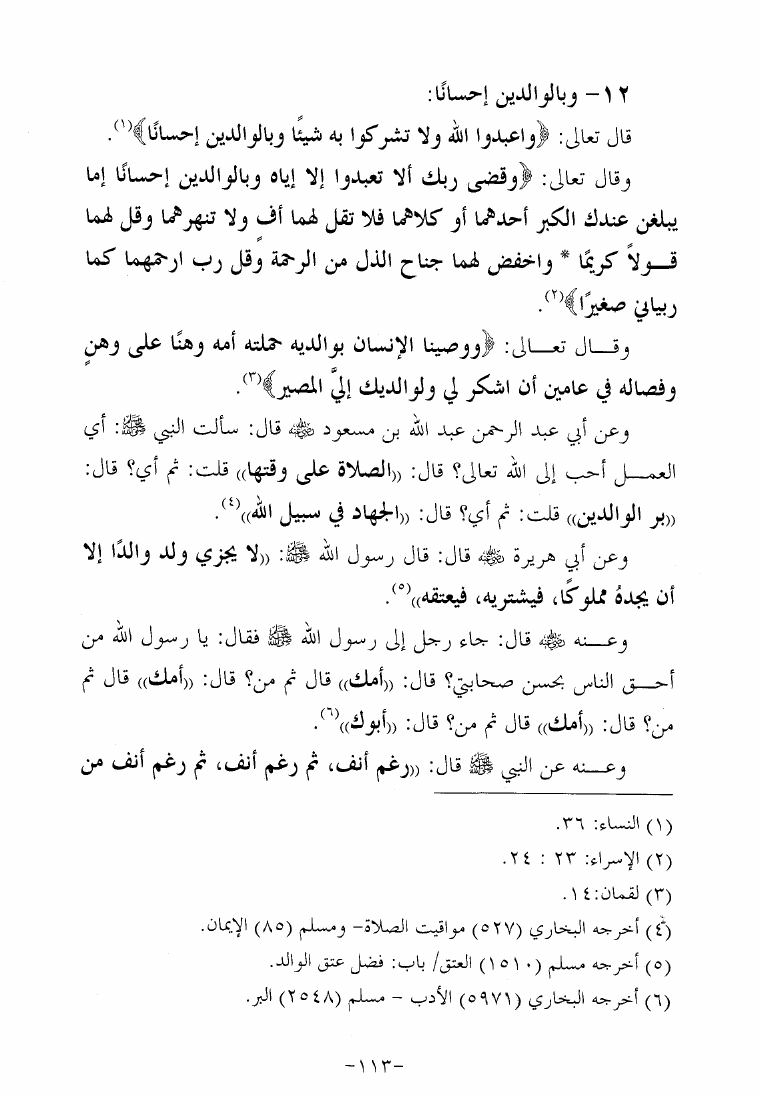 ١٢- وبالوالدين إحسانًا:
قال تعالى: ﴿واعبدوا الله ولا تشركوا به شيئًا وبالوالدين إحسانًا﴾(١).
وقال تعالى: ﴿وقضى ربك ألا تعبدوا إلا إياه وبالوالدين إحسانًا إما
يبلغن عندك الكبر أحدهما أو كلاهما فلا تقل لهما أفٍ ولا تنهرهما وقل لهما
قــولاً كريمًا * واخفض لهما جناح الذل من الرحمة وقل رب ارحمهما كما
ربياني صغيرًا﴾(٢).
وقــال تعــالى: ﴿ووصينا الإنسان بوالديه حملته أمه وهنًا على وهنٍ
وفصاله في عامين أن اشكر لي ولوالديك إليَّ المصير﴾(٣).
وعن أبي عبد الرحمن عبد الله بن مسعود ﷺ قال: سألت النبي ﷺ: أي
العمــل أحب إلى الله تعالى؟ قال: ((الصلاة على وقتها)) قلت: ثم أي؟ قال:
((بر الوالدين)) قلت: ثم أي؟ قال: ((الجهاد في سبيل الله))(٤).
وعن أبي هريرة ﷺ قال: قال رسول الله ﷺ: ((لا يجزي ولد والدًا إلا
أن يجدهُ مملوكًا، فيشتريه، فيعتقه))(٥).
وعــنه ﷺ قال: جاء رجل إلى رسول الله ﷺ فقال: يا رسول الله من
أحــق الناس بحسن صحابتي؟ قال: ((أمك)) قال ثم من؟ قال: ((أمك)) قال ثم
من؟ قال: ((أمك)) قال ثم من؟ قال: ((أبوك))(٦).
وعــنه عن النبي ﷺ قال: ((رغم أنف، ثم رغم أنف، ثم رغم أنف من
(١) النساء: ٣٦.
(٢) الإسراء: ٢٣ : ٢٤.
(٣) لقمان: ١٤.
(٤) أخرجه البخاري (٥٢٧) مواقيت الصلاة- ومسلم (٨٥) الإيمان.
(٥) أخرجه مسلم (١٥١٠) العتق/ باب: فضل عتق الوالد.
(٦) أخرجه البخاري (٥٩٧١) الأدب - مسلم (٢٥٤٨) البر.
-١١٣-